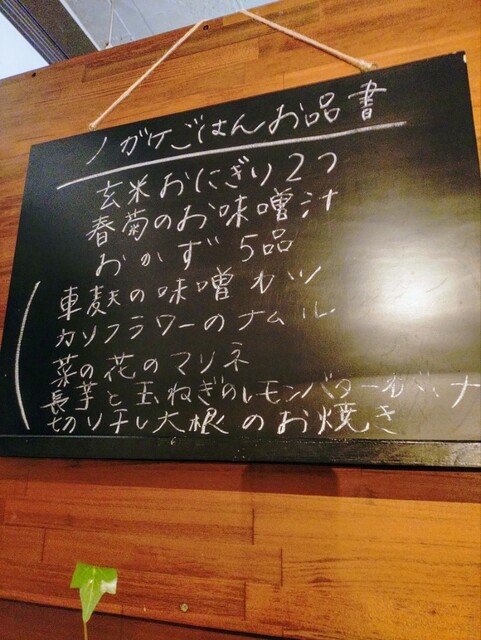 ノガケごはんお品書
玄米おにぎり2つ
春菊のお味噌汁
おかず 5品
車麸の味噌カツ
カリフラワーのナムル
菜の花のマリネ
長芋と玉ねぎのレモンバター
切り干し大根のお焼き